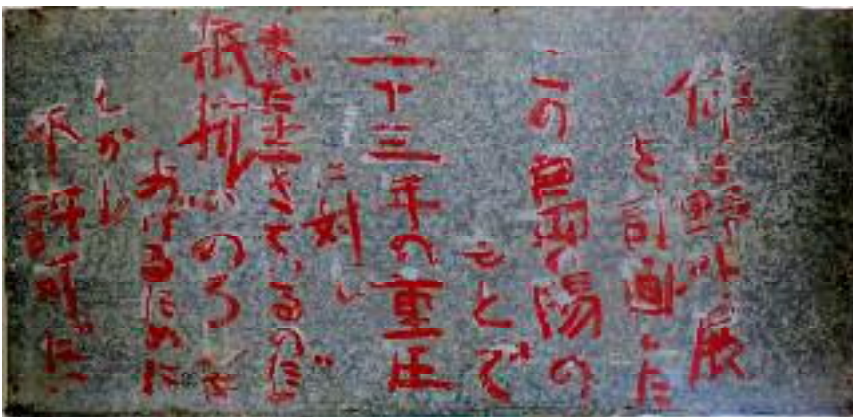 俺は野外展
を計画した
この陽の
もとで
二十三年の重圧
に対し
まだ生きているのだ
抵抗ののろしを
あげるために
しかし
不許可だ